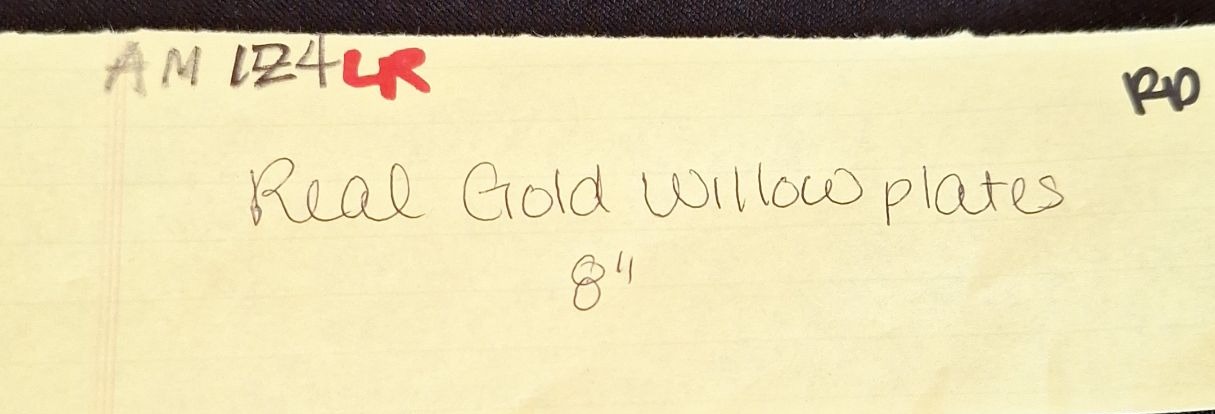 AM 1Z4 LR RD
Real Gold Willow plates
8"